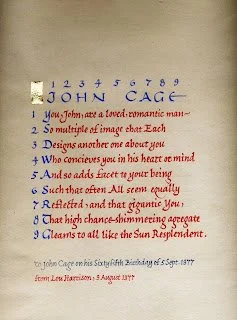 1 2 3 4 5 6 7 8 9
JOHN CAGE
1 You, John, are a loved, romantic man~
2 So multiple of image that Each
3 Designs another one about you
4 Who concieves you in his heart or mind
5 And so adds facet to your being
6 Such that often All seem equally
7 Reflected, and that gigantic You,
8 That high chance-shimmering agregate
9 Gleams to all like the Sun Resplendent.
to John Cage on his Sixty fifth Birthday of 5 Sept. 1977
from Lou Harrison, 3 August 1977